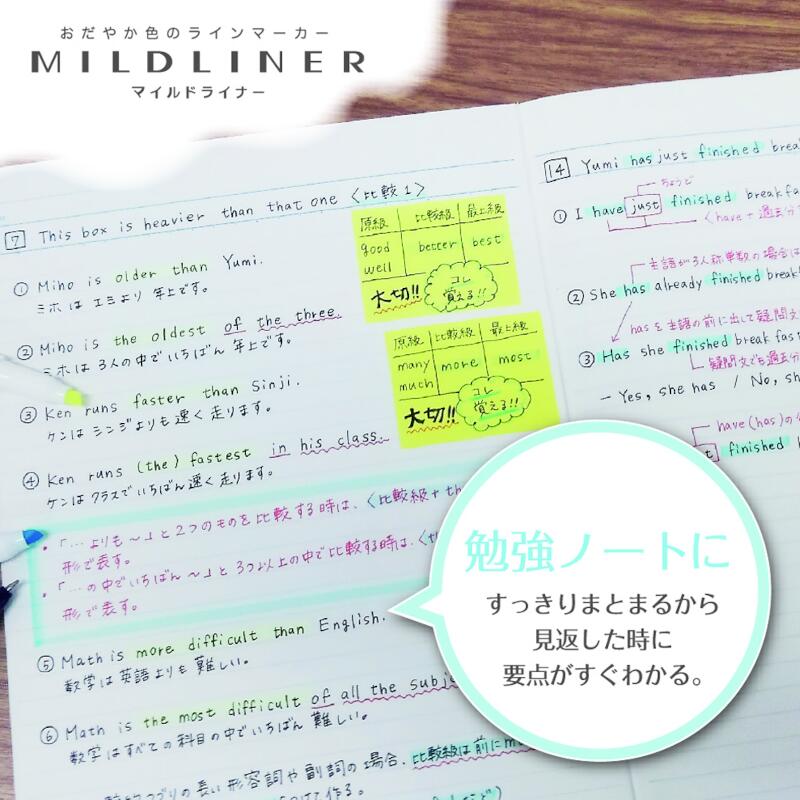 おだやか色のラインマーカー
MILDLINER
マイルドライナー
7 This box is heavier than that one 〈比較1〉
① Miho is older than Yumi.
ミホは エミより 年上です。
② Miho is the oldest of the three.
ミホは 3人の中でいちばん 年上です。
③ Ken runs faster than Sinji.
ケンは シンジよりも 速く 走ります。
④ Ken runs (the) fastest in his class.
ケンは クラスでいちばん 速く 走ります。
・「…よりも〜」と2つのものを比較する時は、〈比較級+th
形で表す。
・「…の中でいちばん〜」と3つ以上の中で比較する時は、〈th
形で表す。
⑤ Math is more difficult than English.
数学は英語よりも 難しい。
⑥ Math is the most difficult of all the subj
数学はすべての科目の中でいちばん 難しい。
つづりの長い 形容詞や副詞の場合、比較級は前にm
つけて作る。
原級 比較級 最上級
good better best
well
大切!!
コレ
覚える!!
原級 比較級 最上級
many more most
much
大切!!
コレ
覚える!!
14 Yumi has just finished brea
ちょうど
① I have just finished breakfa
〈have+過去分
主語が3人称単数の場合は
② She has already finished break
hasを主語の前に出して疑問文
③ Has she finished breakfas
疑問文でも過去分
- Yes, she has / No, sh
have(has)の
finished b
勉強ノートに
すっきりまとまるから
見返した時に
要点がすぐわかる。